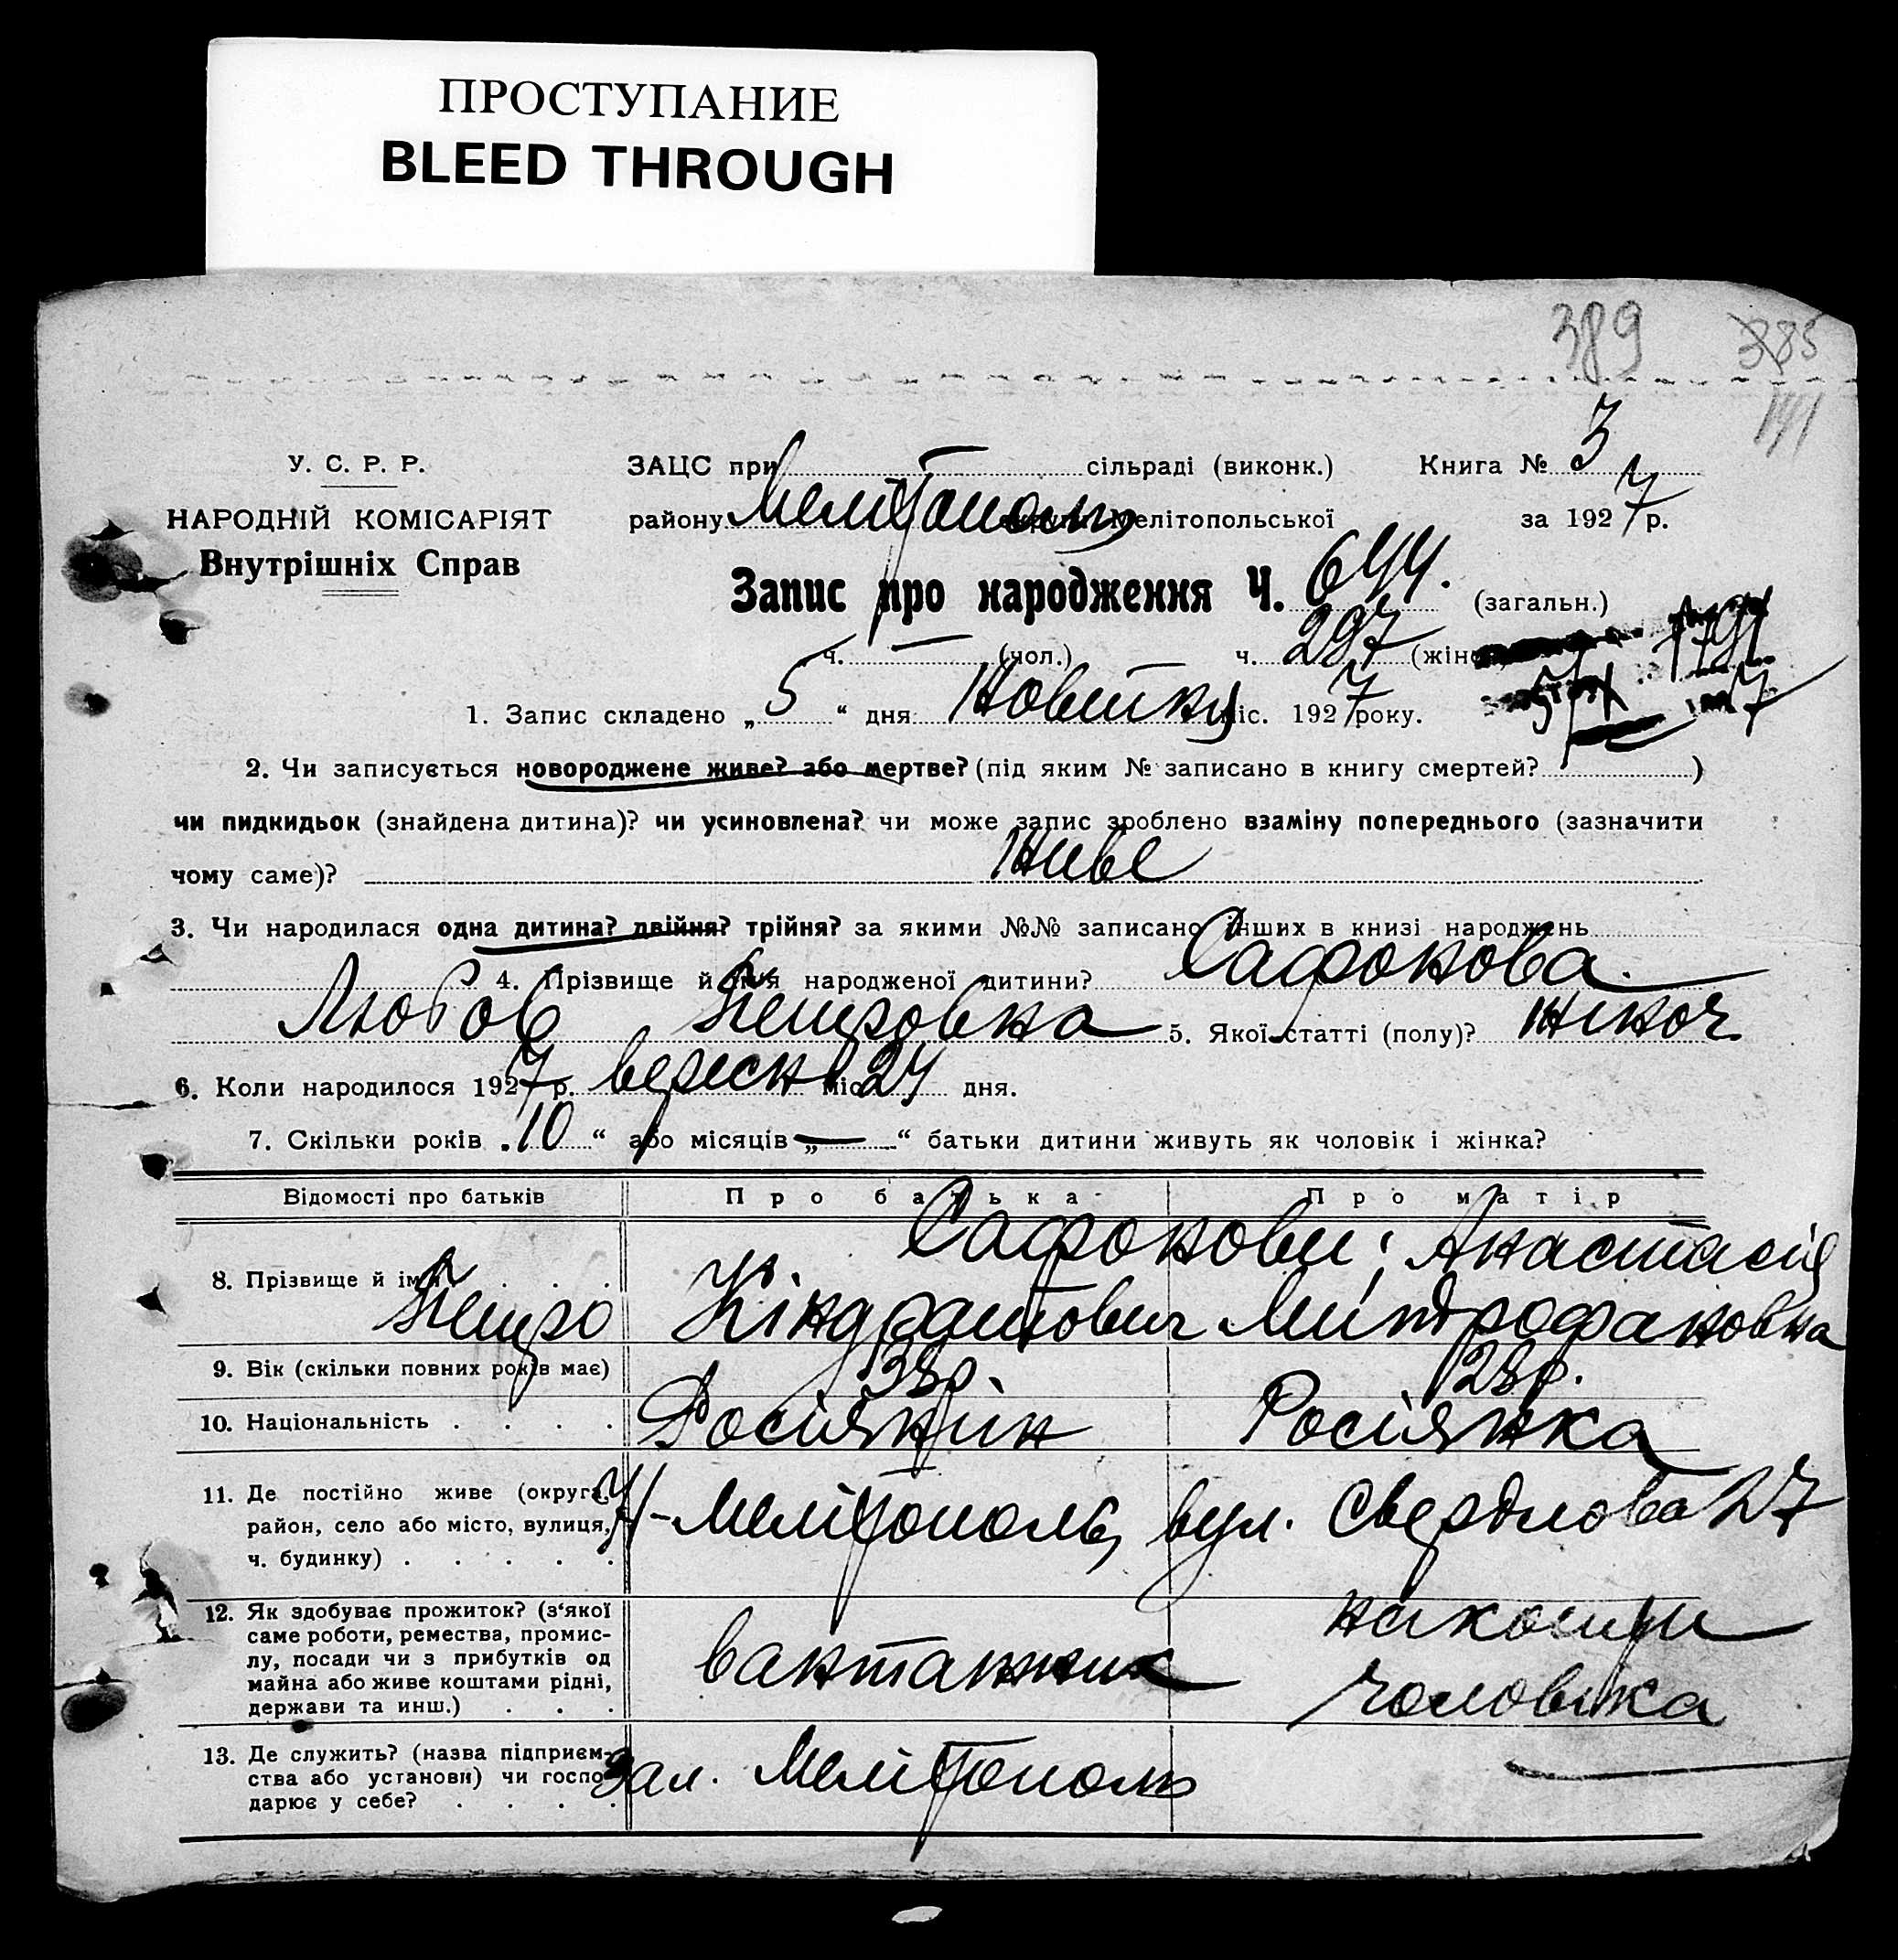 ПРОСТУПАНИЕ
BLEED THROUGH
389 385
У. С. Р. Р.
НАРОДНІЙ КОМІСАРІЯТ
Внутрішніх Справ
ЗАЦС при сільраді (виконк.) Книга № 3
району Мелітополь округи Мелітопольської за 1927 р.
Запис про народження Ч. 644. (загальн.)
ч. — (чол.) ч. 297 (жіноч.)
1. Запис складено „5“ дня міс. 1927 року.
2. Чи записується новороджене живе? або мертве? (під яким № записано в книгу смертей? )
чи пидкидьок (знайдена дитина)? чи усиновлена? чи може запис зроблено взаміну попереднього (зазначити
чому саме)? Живе
3. Чи народилася одна дитина? двійня? трійня? за якими №№ записано інших в книзі народжень
4. Прізвище й ім'я народженої дитини? Сафонова
Любов Петровна 5. Якої статті (полу)? жіноч
6. Коли народилося 1927 р. вересня міс. 24 дня.
7. Скільки років „10“ або місяців „—“ батьки дитини живуть як чоловік і жінка?
Відомості про батьків Про батька Про матір
8. Прізвище й ім'я Сафонови: Анастасія
Петро Кіндратович Митрофановна
9. Вік (скільки повних років має) 38р. 28р.
10. Національність Росіянин Росіянка
11. Де постійно живе (округа,
район, село або місто, вулиця,
ч. будинку) Мелітополь, вул. Свердлова 27
12. Як здобуває прожиток? (з'якої
саме роботи, ремества, промис-
лу, посади чи з прибутків од
майна або живе коштами рідні,
держави та инш.) вантажник на кошти
чоловіка
13. Де служить? (назва підприєм-
ства або установи) чи госпо-
дарює у себе? зал. Мелітополь